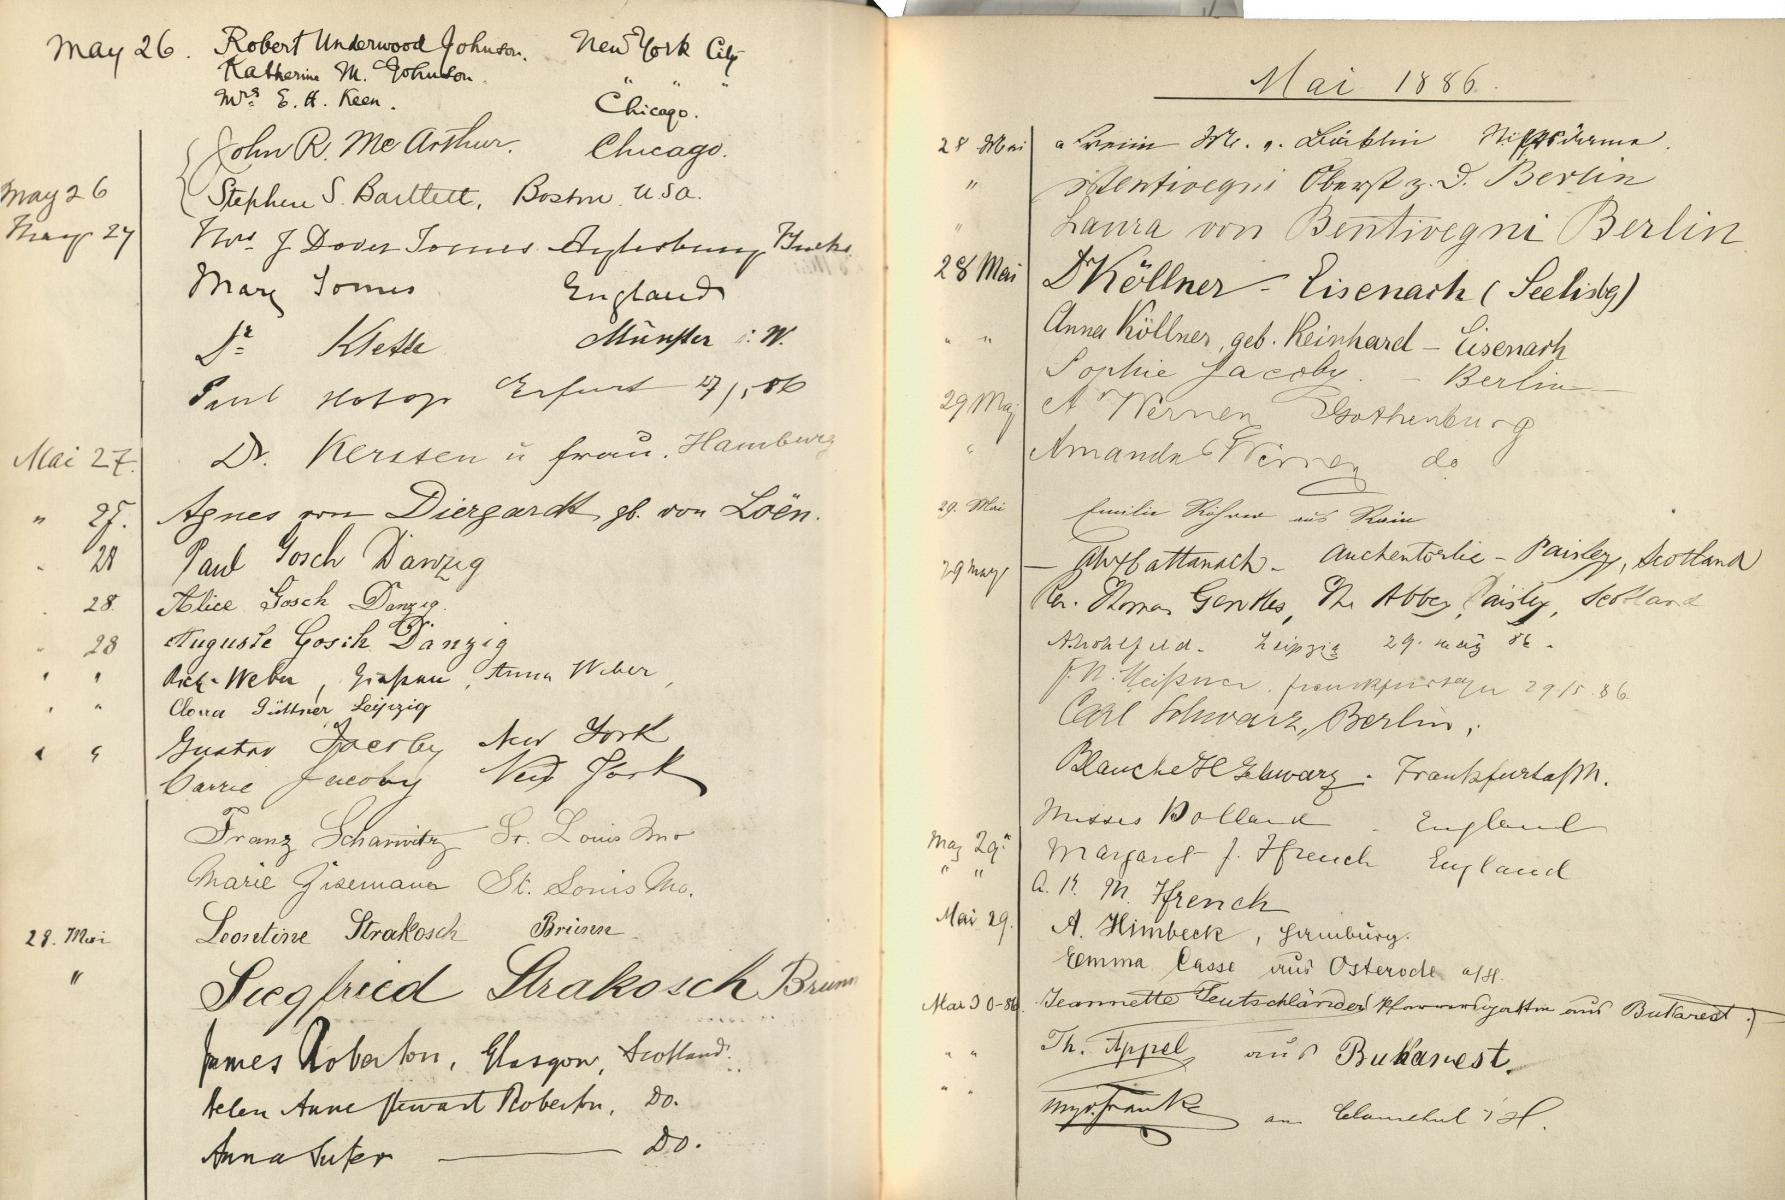 May 26. Robert Underwood Johnson. New York City
Katherine M. Johnson. " " "
Mrs E. H. Keen. Chicago.
John R. McArthur. Chicago.
May 26 Stephen S. Bartlett, Boston U.S.a.
May 27 Mrs J Dover Tomes Aylesbury Bucks
Mary Tomes England
Dr Münster i. W.
Paul Hotop Erfurt 27/5 86
Mai 27. Dr. Kersten u frau. Hamburg
" 27. Agnes von Diergardt, gb. von Loën.
" 28 Paul Gosch Danzig
" 28. Alice Gosch Danzig.
" 28 Auguste Gosch Danzig
" " Weber, Anna Weber,
" " Clara Güttner Leipzig
" " Gustav Jacoby New York
Carrie Jacoby New York
Franz Scharwitz St. Louis Mo
Marie St. Louis Mo.
28. Mai Leontine Strakosch Brünn
" Siegfried Strakosch Brünn
James Roberton, Glasgow, Scotland.
Helen Anne Stewart Roberton, Do.
Anna Suter — Do.
Mai 1886.
28 Mai
" v Bentivegni Oberst z. D. Berlin
" Laura von Bentivegni Berlin
28 Mai Dr Köllner - Eisenach (Seelisbg)
" " Anna Köllner, geb. Reinhard - Eisenach
Sophie Jacoby. - Berlin
29 Maj A Wernen Gothenburg
" Amanda Wernen do
29. Mai Emilie aus
29 May — Cattanach - Auchentorlie - Paisley, Scotland
Rev. Thomas Gentles, The Abbey, Paisley, Scotland
Leipzig 29. 86.
29/5. 86
Carl Schwarz, Berlin,
Blanche H Schwarz. Frankfurt a/M.
Misses Holland. England
May 29" Margaret J. Ffrench England
" " A. K. M. Ffrench
Mai 29. A. Himbeck, Hamburg.
Emma Casse aus Osterode a/H.
Mai 30-86. Jeannette Teutschländer Pfarrersgattin aus Bukarest.
" " Th. Appel aus Bukarest.
" " Franke